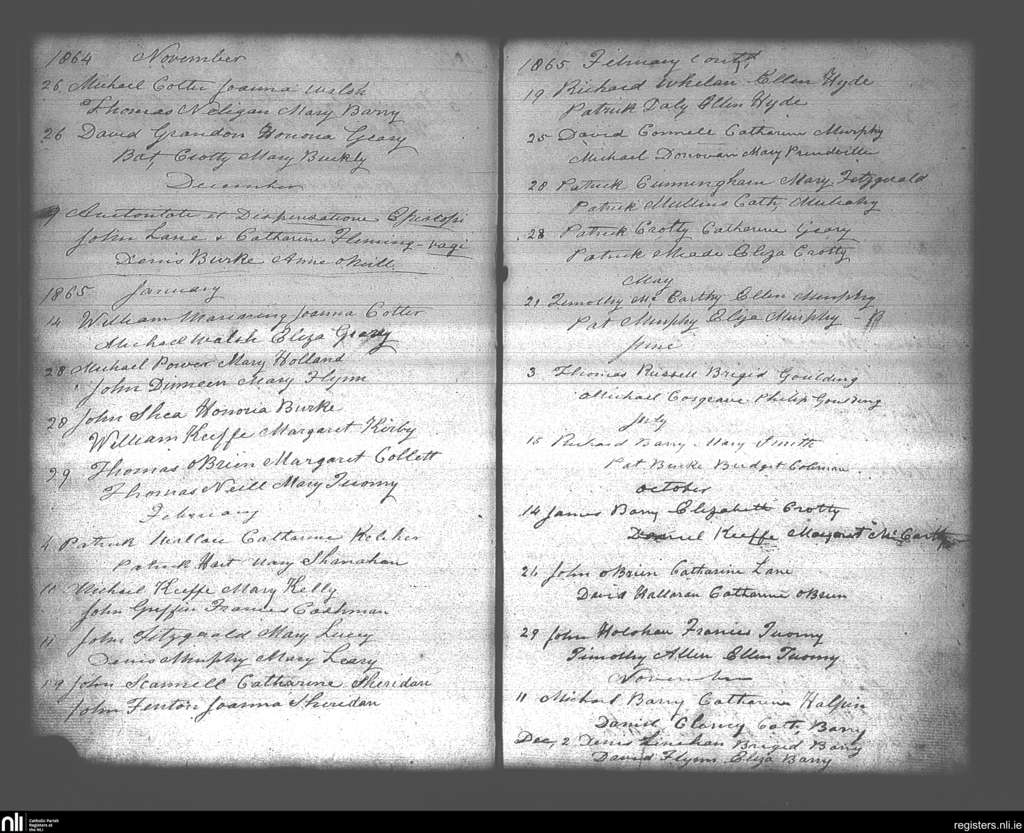 1864 November
26 Michael Cotter Joanna Walsh
Thomas Neligan Mary Barry
26 David Grandon Honora Geary
Bat Crotty Mary Buckly
December
9 Auctoritate et Dispensatione Episcopi
John Lane & Catharine Fleming - vagi
Denis Burke Anne oNeill
1865 January
14 William Joanna Cotter
Michael Walsh Eliza Geary
28 Michael Power Mary Holland
John Dinneen Mary Flynn
28 John Shea Honora Burke
William Keeffe Margaret Kirby
29 Thomas oBrien Margaret Collett
Thomas Neill Mary Tuomy
February
4 Patrick Wallace Catharine Keleher
Patrick Hart Mary Shanahan
11 Michael Keeffe Mary Kelly
John Griffin Frances Cashman
11 John Fitzgerald Mary Lucey
Denis Murphy Mary Leary
19 John Scannell Catharine Sheridan
John Fenton Joanna Sheridan
1865 February contd
19 Richard Whelan Ellen Hyde
Patrick Daly Ellen Hyde
25 David Connell Catharine Murphy
Michael Donovan Mary Prendiville
28 Patrick Cunningham Mary Fitzgerald
Patrick Mullins Cath. Mulcahy
28 Patrick Crotty Catharine Geary
Patrick Meade Eliza Crotty
May
21 Timothy Mc Carthy Ellen Murphy
Pat Murphy Eliza Murphy
June
3 Thomas Russell Brigid Goulding
Michael Cosgrave Philip Goulding
July
15 Richard Barry Mary Smith
Pat Burke Bridget Coleman
October
14 James Barry Elizabeth Crotty
Daniel Keeffe Margaret Mc Carthy
21 John oBrien Catharine Lane
David Halloran Catharine oBrien
29 John Holohan Frances Tuomy
Timothy Allen Ellen Tuomy
November
11 Michael Barry Catharine Halpin
Daniel Clancy Cath. Barry
Dec, 2 Denis Linehan Brigid Barry
David Flynn Eliza Barry
nli Catholic Parish
Registers at
the NLI
registers.nli.ie